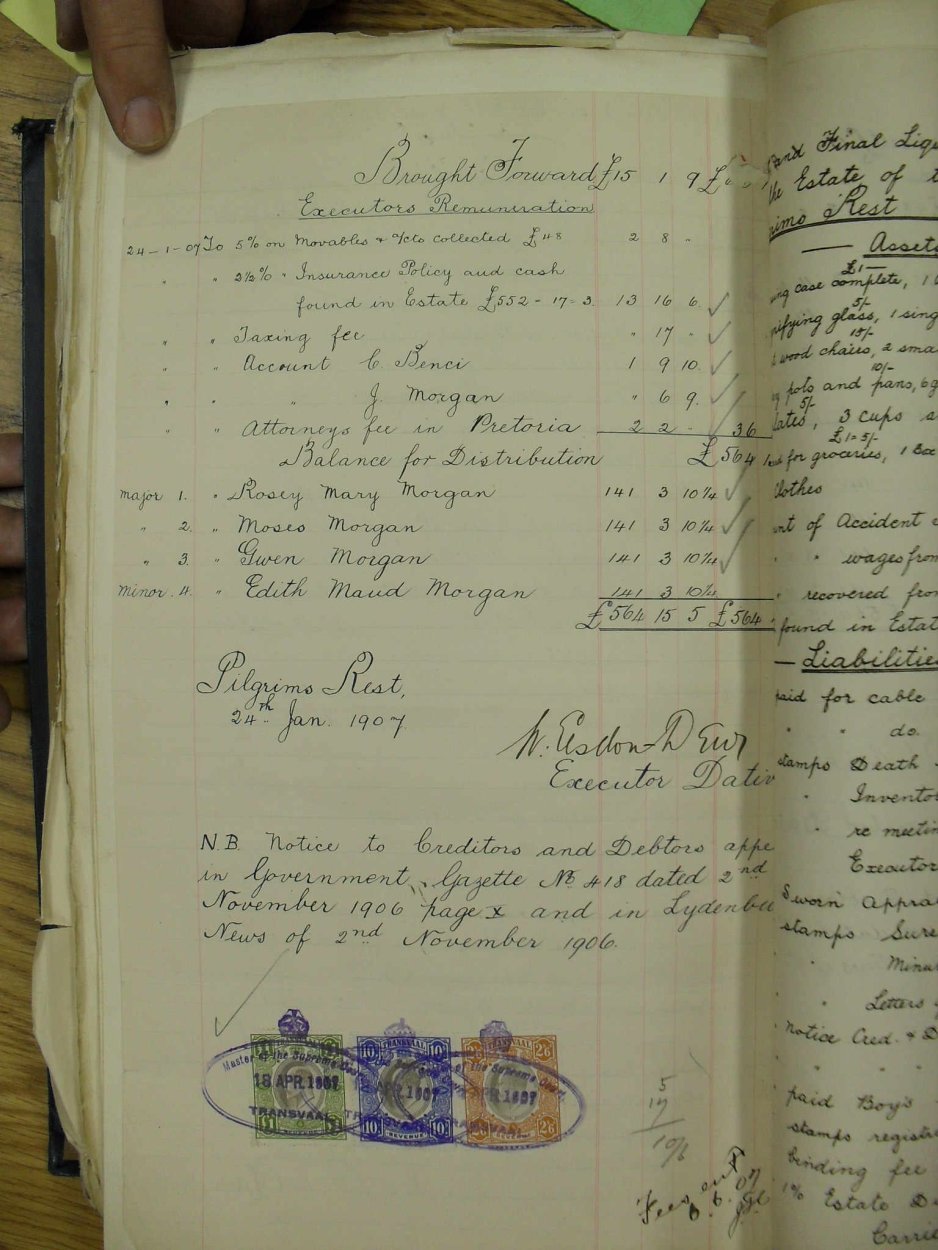 Brought Forward £15 1 9 £
Executors Remuneration
24-1-07 To 5% on Movables & a/cts collected £48 2 8 "
" " 2½% " Insurance Policy and cash
found in Estate £552-17=3. 13 16 6 ✓
" " Taxing fee " 17 " ✓
" " Account C Benci 1 9 10 ✓
" " " J. Morgan " 6 9. ✓
" " Attorneys fee in Pretoria 2 2 - ✓ 36
Balance for Distribution £564
major 1. " Rosey Mary Morgan 141 3 10¼ ✓
" 2. " Moses Morgan 141 3 10¼ ✓
" 3. " Gwen Morgan 141 3 10¼ ✓
minor 4. " Edith Maud Morgan 141 3 10¼
£564 15 5 £564
Pilgrims Rest,
24th Jan. 1907
Executor Dativ
N.B. Notice to Creditors and Debtors appe
in Government Gazette No 418 dated 2nd
November 1906 page x and in Lydenbu
News of 2nd November 1906.
TRANSVAAL
Master of the Supreme Court
18 APR. 1907
TRANSVAAL
£1 £1
TRANSVAAL
10/- 10/-
APR. 1907
REVENUE
10/- 10/-
of the Supreme Court
APR. 1907
2/6 2/6
5
17
10/6
Fees ent
6.6.07
and Final Liqu
the Estate of t
rims Rest
— Assets
£1-
ing case complete, 1
5/-
nifying glass, 1 sing
15/-
wood chairs, 2 sma
10/-
pots and pans, 6 g
5/-
lates, 3 cups a
£1=5/-
for groceries, 1 Box
lothes
nt of Accident
" " wages from
" recovered from
found in Estat
— Liabilitie
paid for cable
" " do.
stamps Death
" Invento
" re meetin
Executor
Sworn Apprai
stamps Sure
" Minu
" Letters
notice Cred. & D
paid Boy's
stamps registr
binding fee
1% Estate D
Carrie